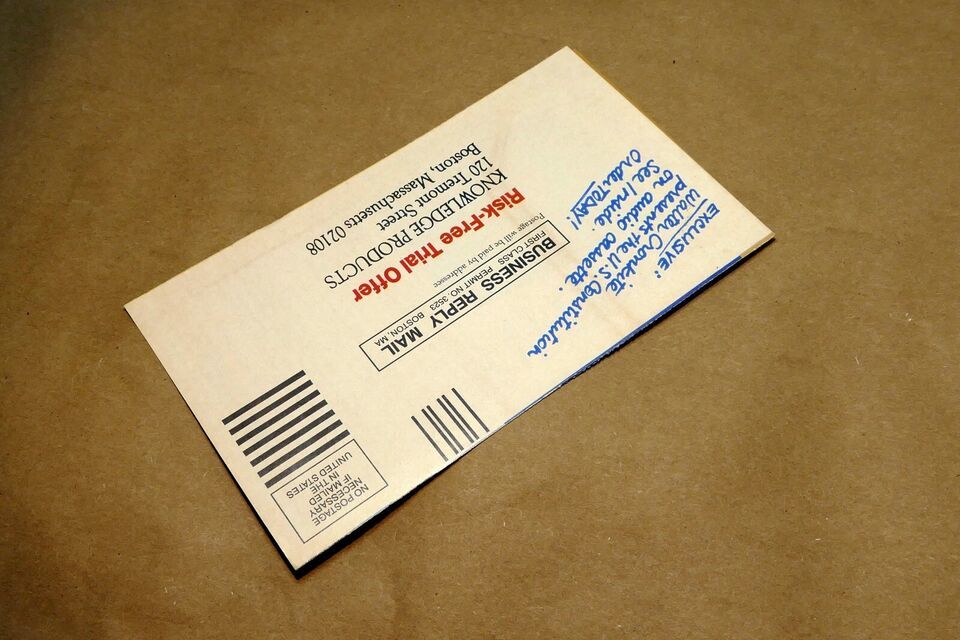 EXCLUSIVE!
Walter Cronkite
presents the U.S. Constitution
on audio cassette.
See Inside.
Order TODAY!
NO POSTAGE
NECESSARY
IF MAILED
IN THE
UNITED STATES
BUSINESS REPLY MAIL
FIRST CLASS PERMIT NO. 3523 BOSTON, MA
Postage will be paid by addressee
Risk-Free Trial Offer
KNOWLEDGE PRODUCTS
120 Tremont Street
Boston, Massachusetts 02108